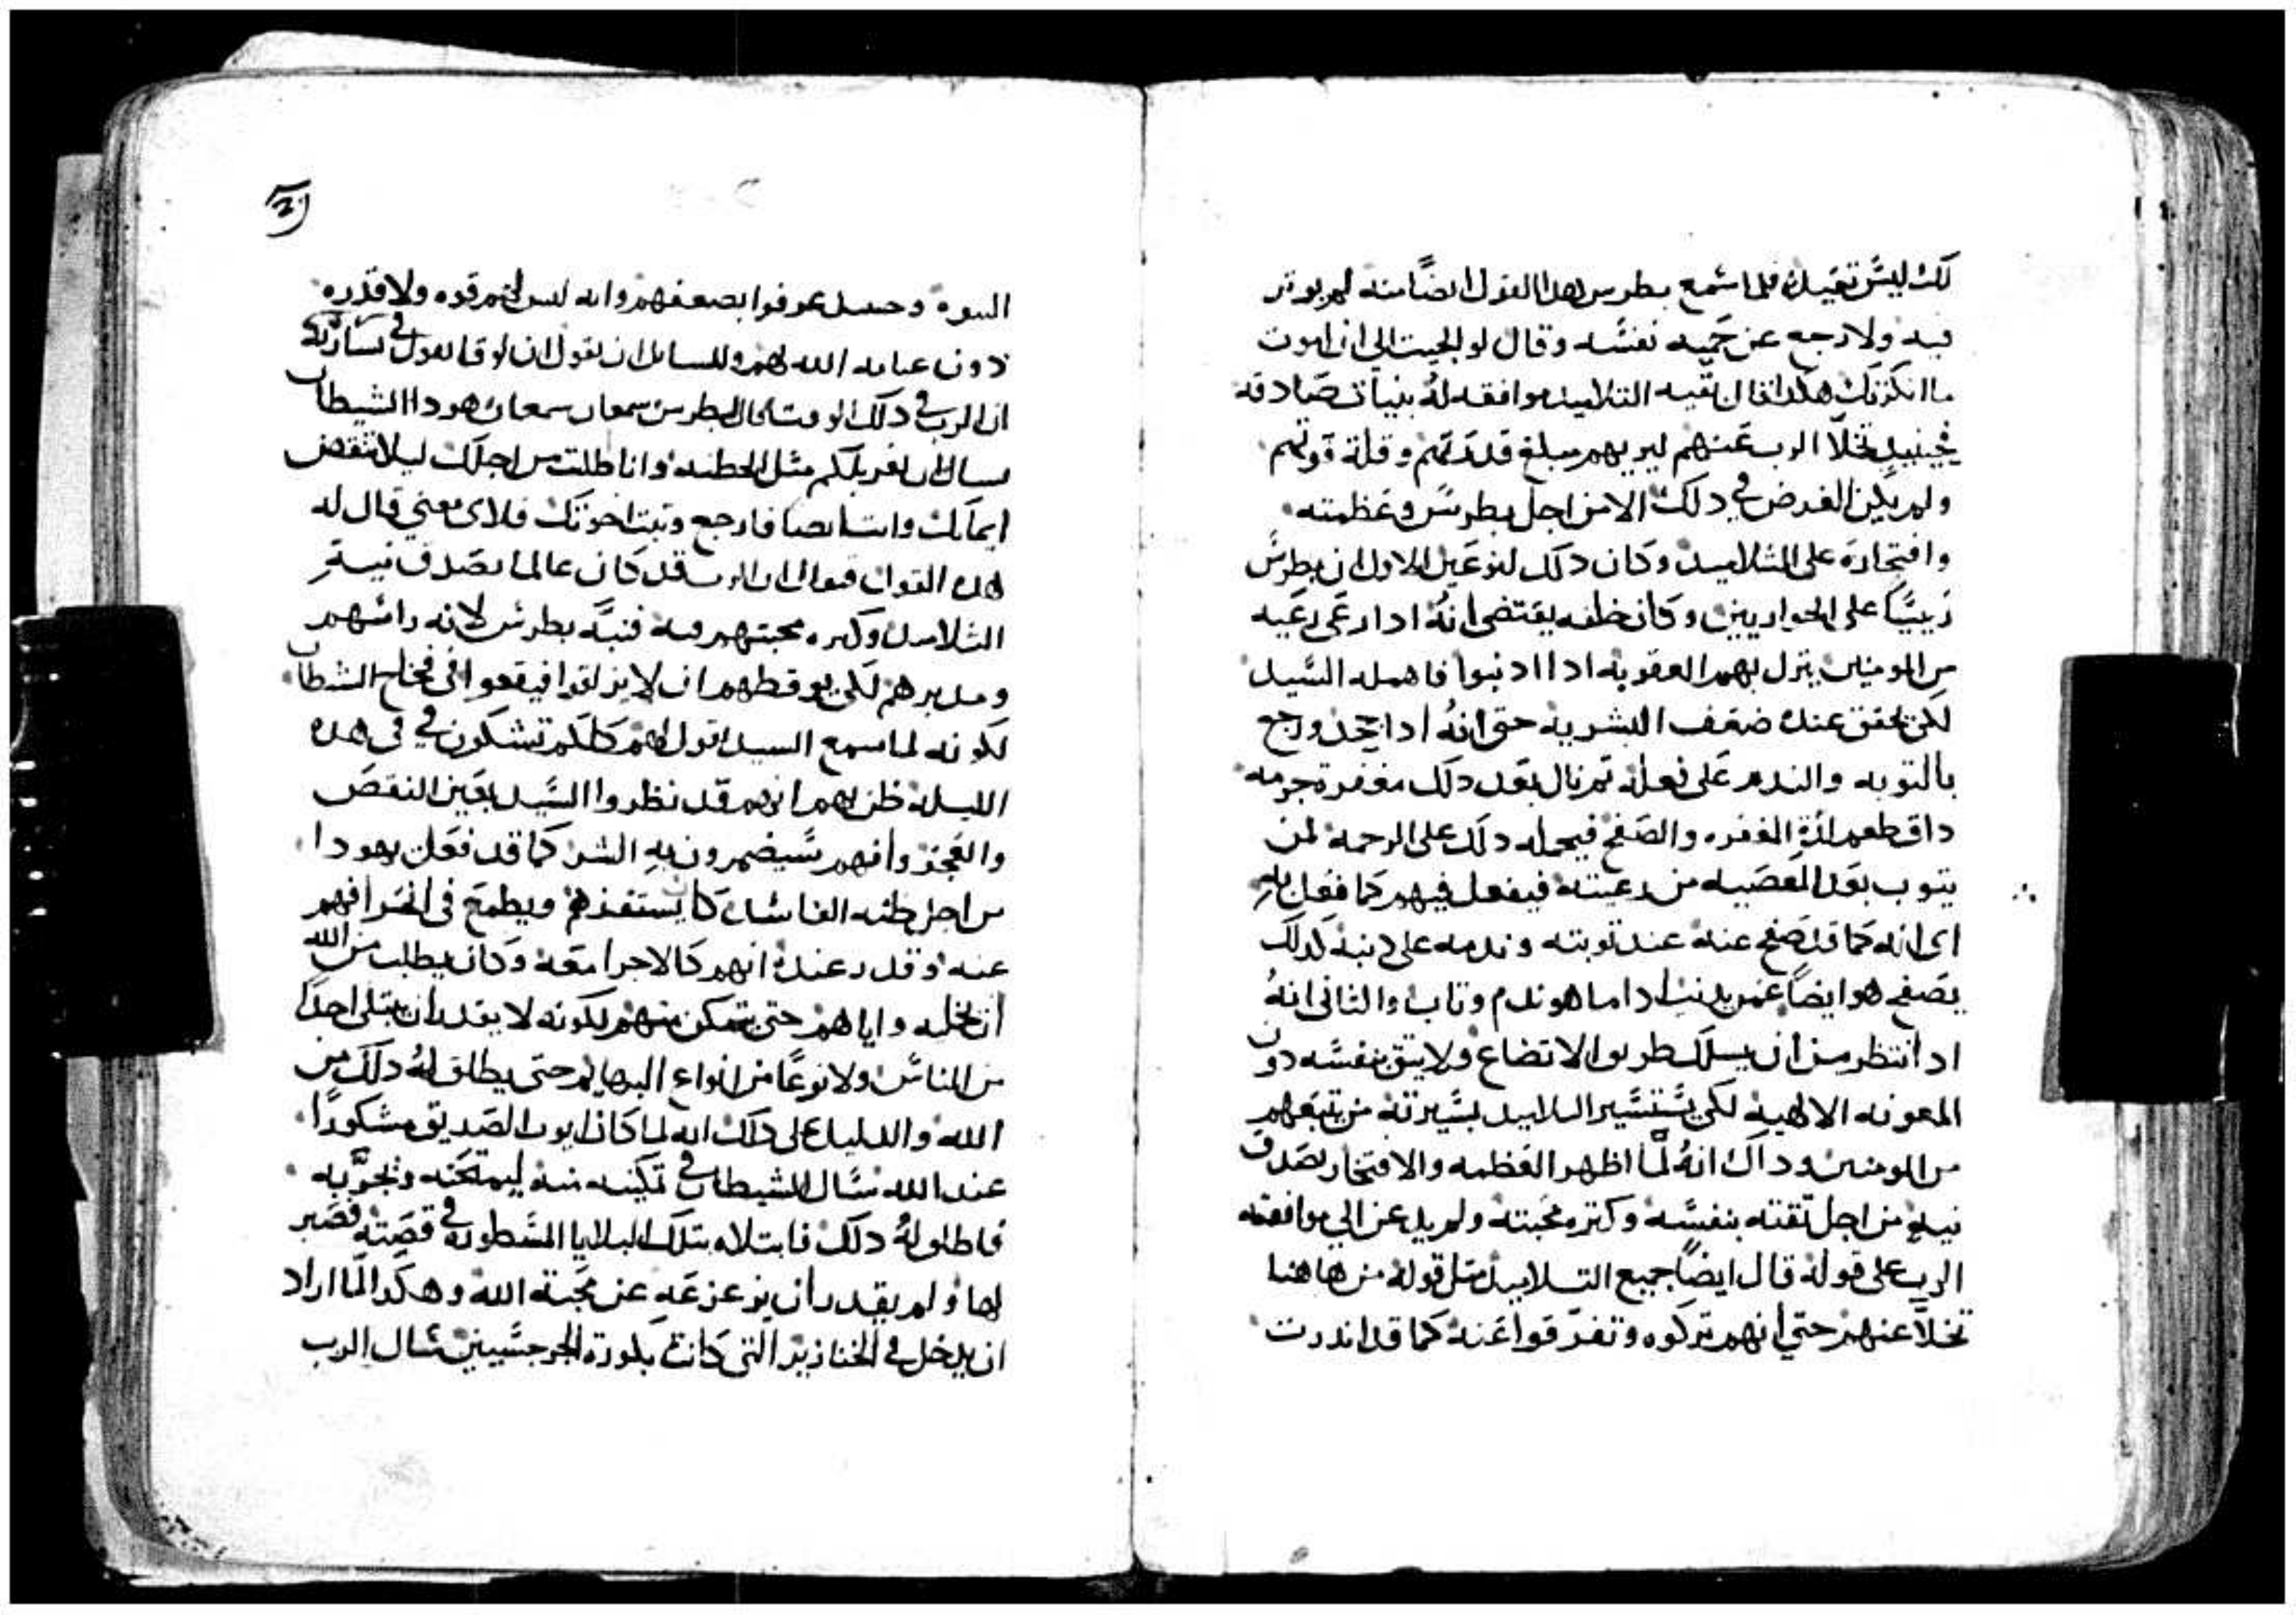 لك ليس تعيدك فلما سمع بطرس هدا القول ايضا منه لم يوتر
فيه ولا رجع عن حميه نفسه وقال لو الجيت الي ان اموت
ما انكرتك هكدا قال بقيه التلاميد موافقه له بنيات صادقه
فحينيد تخلا الرب عنهم ليريهم مبلغ قدرتهم وقلة قوتهم
ولم يكن الغرض في دلك الا من اجل بطرس وعظمته
وافتخاره علي التلاميد وكان دلك لنوعين الاول ان بطرس
رييسا علي الحواريين وكان خلقه يقتضي انه ادا رعي رعيه
من المومنين ينزل بهم العقوبه ادا ادنبوا فاهمله السيد
لكي تحقق عنده ضعف البشريه حتي انه ادا جحد ورجع
بالتوبه والندم علي فعله تم نال بعد دلك مغفرة جرمه
داق طعم لدة المغفره والصفح فيحمله دلك علي الرحمه لمن
يتوب بعد المعصيه من رعيته فيفعل فيهم كما فعل به
اي انه كما قد صفح عنه عند توبته وندمه علي دنبه كدلك
يصفح هو ايضا عمن يدنب ادا ما هو ندم وتاب والثاني انه
اد انتظر من ان يسلك طريق الاتضاع ولا يتق بنفسه دون
المعونه الالهيه لكي يستسير التلاميد بسيرته من تبعهم
من المومنين وداك انه لما اظهر العظمه والافتخار بصدق
نيته من اجل تقته بنفسه وكتره محبته ولم يدعن الي موافقه
الرب علي قوله قال ايضا جميع التلاميد متل قوله من هاهنا
تخلا عنهم حتي انهم تركوه وتفرقوا عنه كما قد اندرت
النبوه وحينيد عرفوا بضعفهم وانه ليس لهم قوه ولا قدره
دون عنايه الله لهم وللسايل ان يقول ان لوقا يقول في بشارته
ان الرب في دلك الوقت قال لبطرس سمعان سمعان هودا الشيطان
يسال ان يغربلكم مثل الحنطه وانا طلبت من اجلك ليلا تنقص
ايمانك وانت ايضا فارجع وتبت اخوتك فلاي معني قال له
هدا القول فنقول ان الرب قد كان عالما بصدق نية
التلاميد وكتره محبتهم فيه فنبه بطرس لانه راسهم
ومدبرهم لكي يوقظهم ان لا ينزلقوا فيقعوا في فخاخ الشيطان
لكونه لما سمع السيد يقول لهم كلكم تشكون في في هده
الليله ظن بهم انهم قد نظروا السيد بعين النقص
والعجز وانهم سيضمرون به الشر كما قد فعل يهودا
من اجل ظنه الفاسد كان يستفزهم ويطمع في انحرافهم
عنه وقدر عنده انهم كالاجرا معه وكان يطلب من الله
ان يخليه واياهم حتي يتمكن منهم لكونه لا يقدر ان يبتلي احدا
من الناس ولا نوعا من انواع البهايم حتي يطلق له دلك من
الله والدليل علي دلك انه لما كان ايوب الصديق مشكورا
عند الله سال الشيطان في تمكينه منه ليمتحنه ويجربه
فاطلق له دلك فابتلاه بتلك البلايا المسطوره في قصته فصبر
لها ولم يقدر ان يزعزعه عن محبته الله وهكدا لما اراد
ان يدخل في الخنازير التي كانت بكورة الجرجسيين سال الرب